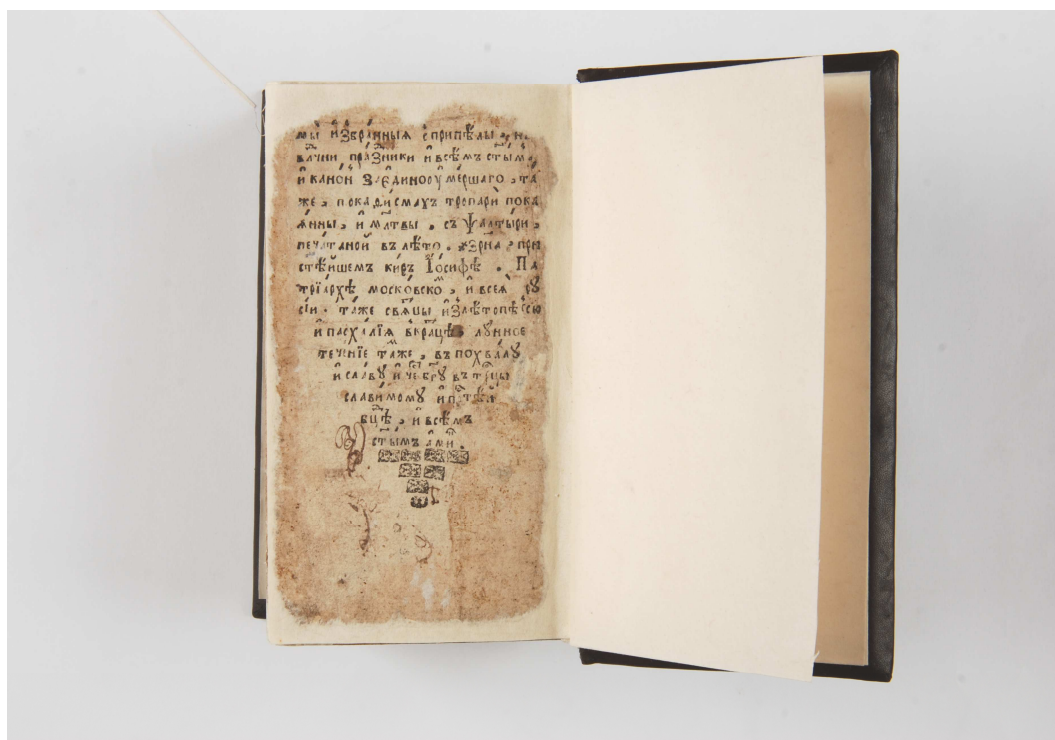 мы̀ и҆збра́нныѧ с̾припѣ́лы , н҆а
влⷣчни пра́зⷣники и҆всѣ́мъ ст҃ы́мъ ,
и҆ кано́нъ З҆аединооу҆ме́ршаго , та́
же , покаѳи́смахъ тропарѝ пока
ѧ́нны , и҆ мл҃твы , съ Ѱалты́ри ,
печа́таной въ лѣ́то , ҂зрна , при
ст҃ѣ́йшемъ ки́ръ І҆о́сифѣ . Па
трїа́рхѣ моско́вскоⷨ , и҆ всеѧ̀ рꙋ
сі́и . та́же св҃ѧцы и҆злѣ́топⷭ҇ію
и҆ пасха́лїѧ вкра́цѣ лꙋ́нное
тече́нїе та́же , въ похвалꙋ̀
и҆ сла́вꙋ и҆
сла́вимомꙋ и҆
бц҃ѣ , и҆ всѣ́мъ
ст҃ы́мъ а҆ми́нь .